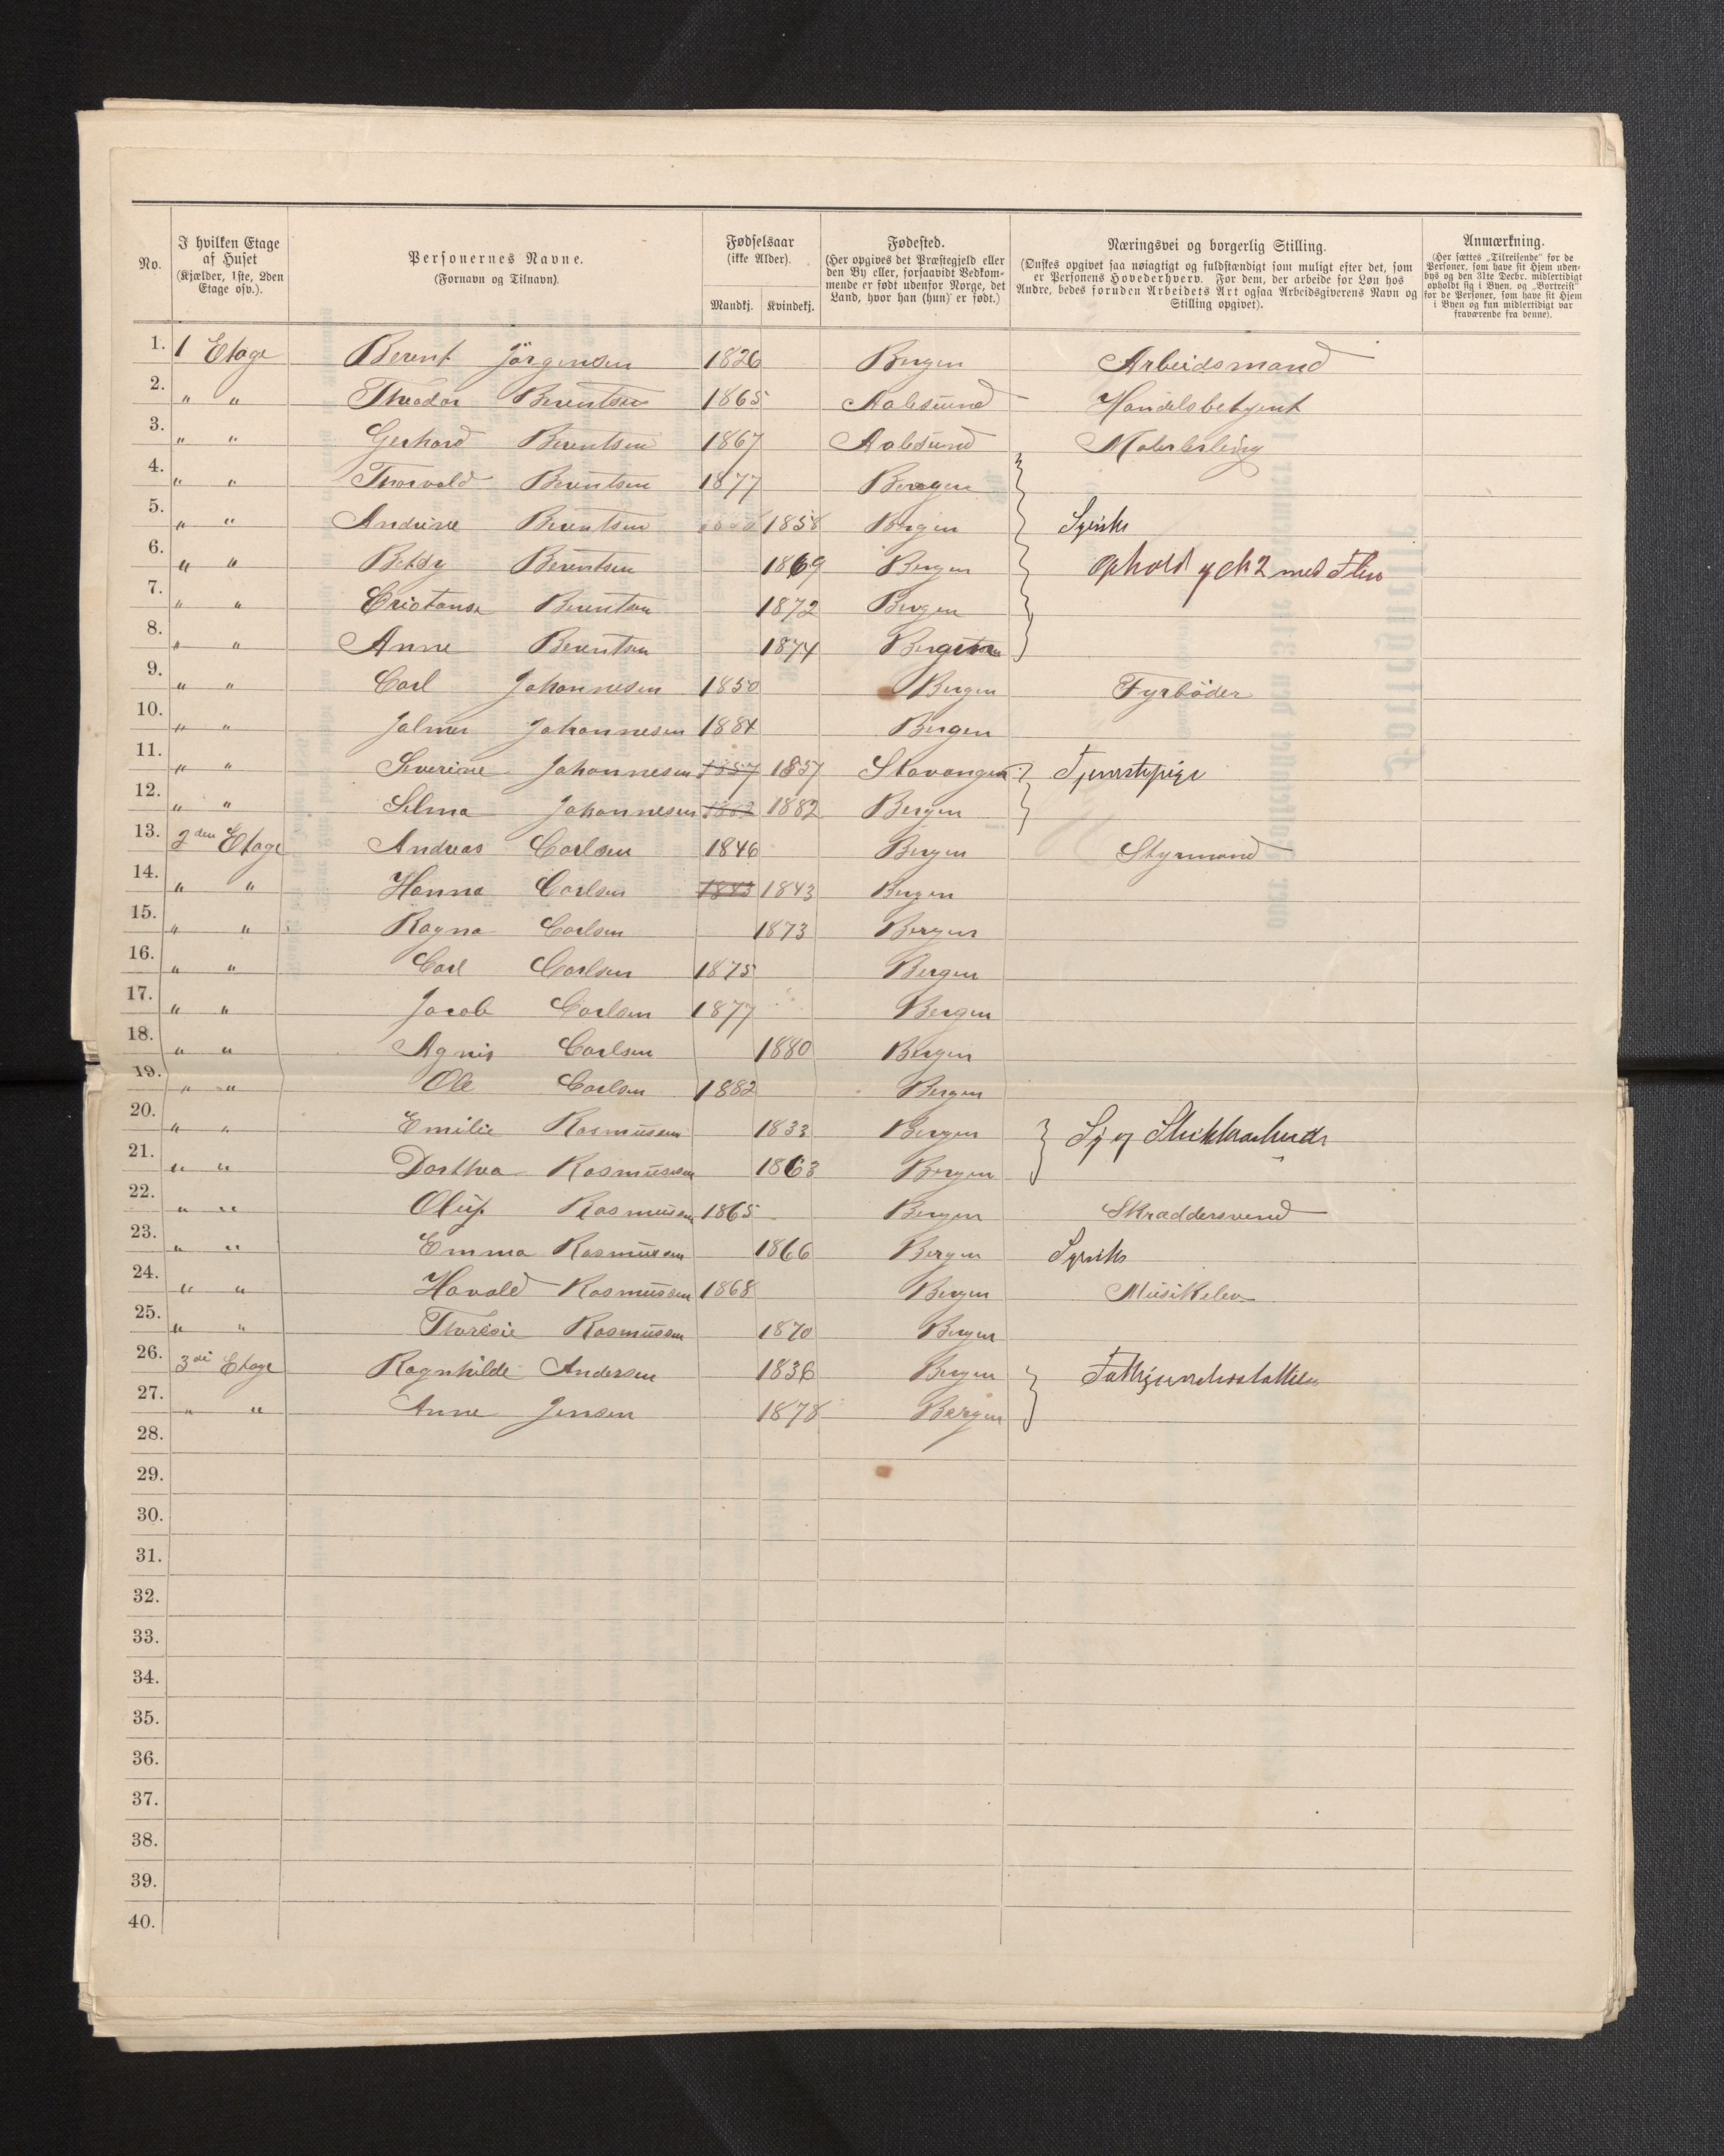 No.
I hvilken Etage af Huset (Kjælder, 1ste, 2den Etage osv.).
Personernes Navne. (Fornavn og Tilnavn).
Fødselsaar (ikke Alder).
Mandkj. Kvindekj.
Fødested. (Her opgives det Præstegjeld eller den By eller, forsaavidt Vedkommende er født udenfor Norge, det Land, hvor han (hun) er født.)
Næringsvei og borgerlig Stilling. (Ønskes opgivet saa nøiagtigt og fuldstændigt som muligt efter det, som er Personens Hovederhverv. For dem, der arbeide for Løn hos Andre, bedes foruden Arbeidets Art ogsaa Arbeidsgiverens Navn og Stilling opgivet).
Anmærkning. (Her sættes „Tilreisende" for de Personer, som have sit Hjem udenbys og den 31te Decbr. midlertidigt opholdt sig i Byen, og „Bortreist" for de Personer, som have sit Hjem i Byen og kun midlertidigt var fraværende fra denne).
1. 1 Etage Berent Jörgensen 1826 Bergen Arbeidsmand
2. " " Theodor Berentsen 1865 Aalesund Handelsbetjent
3. " " Gerhard Berentsen 1867 Aalesund Malerlerling
4. " " Thorvald Berentsen 1877 Bergen
5. " " Andrine Berentsen 1858 1858 Bergen Syerske
6. " " Betsy Berentsen 1869 Bergen Ophold
7. " " Cristanse Berentsen 1872 Bergen
8. " " Anne Berentsen 1874 Bergen
9. " " Carl Johannesen 1850 Bergen Fyrböder
10. " " Jalmer Johannesen 1884 Bergen
11. " " Severine Johannesen 1857 1857 Stavanger Tjenestepige
12. " " Selma Johannesen 1882 1882 Bergen
13. 2den Etage Andreas Carlsen 1846 Bergen Styrmand
14. " " Hanna Carlsen 1843 1843 Bergen
15. " " Ragna Carlsen 1873 Bergen
16. " " Carl Carlsen 1875 Bergen
17. " " Jacob Carlsen 1877 Bergen
18. " " Agnes Carlsen 1880 Bergen
19. " " Ole Carlsen 1882 Bergen
20. " " Emilie Rasmussen 1833 Bergen Sy og
21. " " Dorthea Rasmussen 1863 Bergen
22. " " Oluf Rasmussen 1865 Bergen Skraddersvend
23. " " Emma Rasmussen 1866 Bergen Syerske
24. " " Harald Rasmussen 1868 Bergen Musikelev
25. " " Theresie Rasmussen 1870 Bergen
26. 3die Etage Ragnhilde Andersen 1836 Bergen Fattigunderstøttelse
27. " " Anne Jensen 1878 Bergen
28.
29.
30.
31.
32.
33.
34.
35.
36.
37.
38.
39.
40.